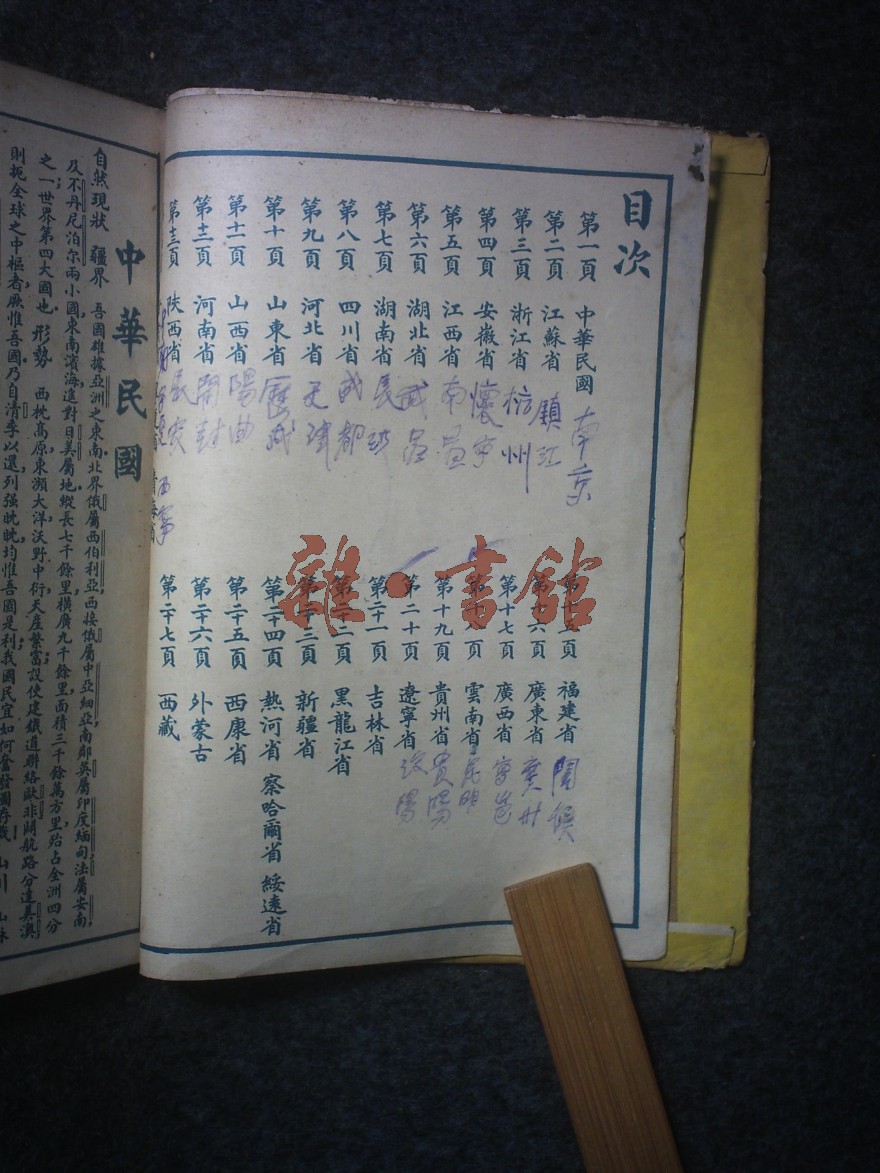 目次
第一頁 中華民國 南京
第二頁 江蘇省 鎮江
第三頁 浙江省 杭州
第四頁 安徽省 懷寧
第五頁 江西省 南昌
第六頁 湖北省 武昌
第七頁 湖南省 長沙
第八頁 四川省 成都
第九頁 河北省 天津
第十頁 山東省 歷城
第十一頁 山西省 陽曲
第十二頁 河南省 開封
第十三頁 陝西省 長安
西寧
第十五頁 福建省 閩侯
第十六頁 廣東省 廣州
第十七頁 廣西省 邕寧
第十八頁 雲南省 昆明
第十九頁 貴州省 貴陽
第二十頁 遼寧省 瀋陽
第二十一頁 吉林省
第二十二頁 黑龍江省
第二十三頁 新疆省
第二十四頁 熱河省 察哈爾省 綏遠省
第二十五頁 西康省
第二十六頁 外蒙古
第二十七頁 西藏
中華民國
自然現狀 疆界 吾國雄據亞洲之東南北界俄屬西伯利亞西接俄屬中亞細亞南鄰英屬印度緬甸法屬安南
及不丹尼泊尔兩小國東南濱海遙對日美屬地縱長七千餘里橫廣九千餘里面積三千餘萬方里殆占全洲四分
之一世界第四大國也 形勢 西枕高原東瀕大洋沃野中衍天產繁富設使建鐵道聯絡歐非開航路分達美澳
則扼全球之中樞者厥惟吾國乃自清季以還列强眈眈均惟吾國是利我國民宜如何奮發圖存哉 山川
雜·書館